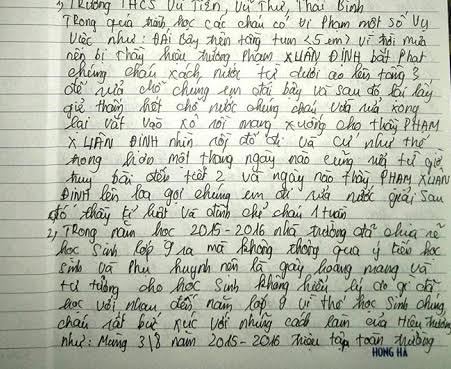 1) Trường THCS Vũ Tiến, Vũ Thư, Thái Bình
Trong quá trình học các cháu có vi phạm một số vụ
việc như: Đái bậy trên tầng tum (5 em) vì trời mưa
nên bị thầy hiệu trưởng PHẠM XUÂN ĐÍNH bắt phạt
chúng cháu xách nước từ dưới ao lên tầng 3
để rửa chỗ chúng em đái bậy và sau đó lại lấy
giẻ thấm hết chỗ nước chúng cháu vừa rửa xong
lại vắt vào xô rồi mang xuống cho thầy PHẠM
XUÂN ĐÍNH nhìn rồi đổ đi và cứ như thế
trong hơn một tháng ngày nào cũng rửa từ giờ
truy bài đến tiết 2 và ngày nào thầy PHẠM XUÂN
ĐÍNH lên loa gọi chúng em đi rửa nước giải sau
đó thầy và đình chỉ cháu 1 tuần
2) Trong năm học 2015-2016 nhà trường đã chia rẽ
học sinh lớp 9 ra mà không thông qua ý kiến học
sinh và phụ huynh nên là gây hoang mang và
tư tưởng cho học sinh không hiểu lý do gì đã
học với nhau đến năm lớp 9 vì thế học sinh chúng
cháu rất bức xúc với những cách làm của Hiệu trưởng
như: Mùng 3/8 năm 2015-2016 triệu tập toàn trường
HONG HA